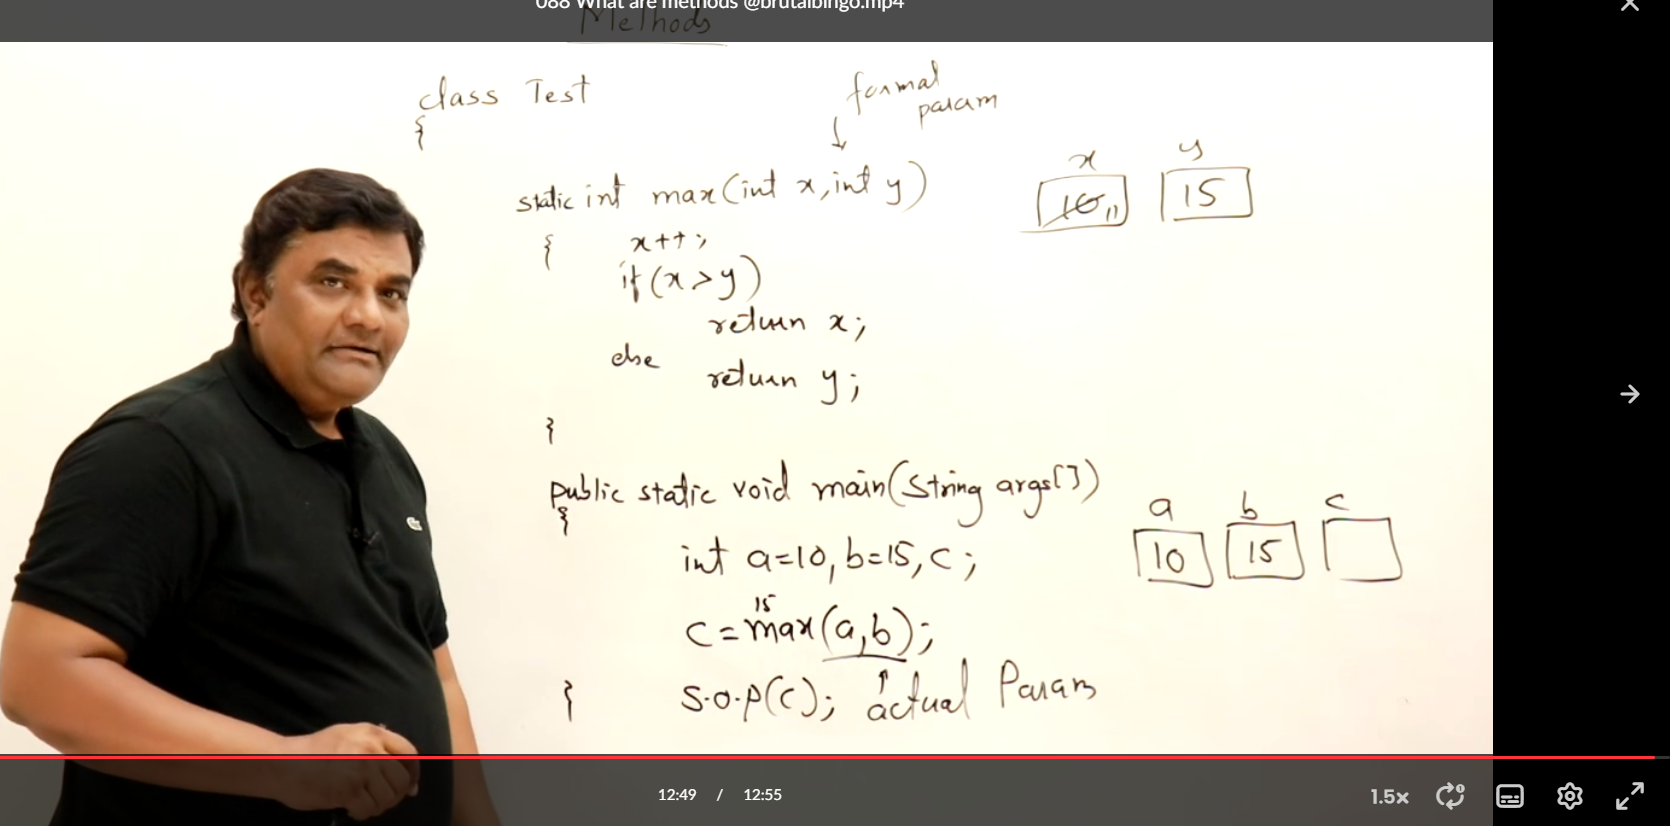 088 What are methods @brutalbingo.mp4
Methods
class Test
{
formal
param
static int max(int x, int y)
x y
10 11 15
{ x++;
if(x>y)
return x;
else
return y;
}
public static void main(String args[])
{
a b c
10 15
int a=10, b=15, c;
15
c=max(a,b);
} S.O.P(c); actual Param
12:49 / 12:55
1.5x